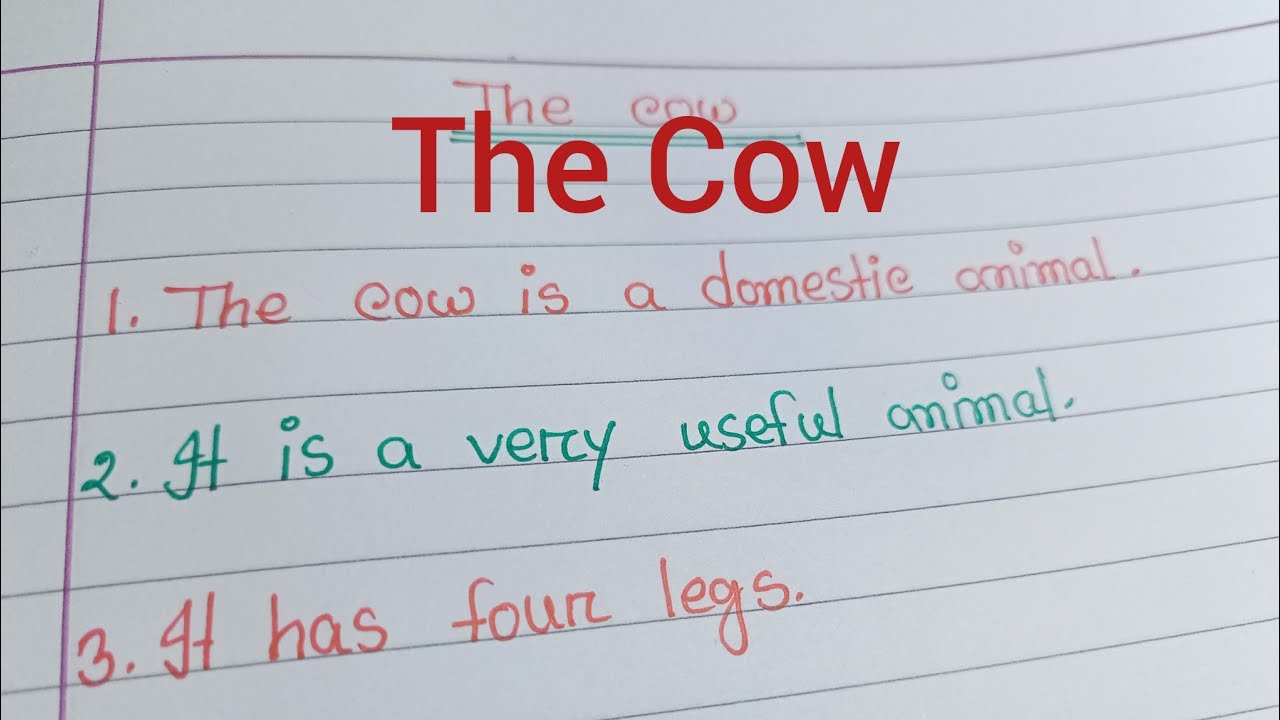 The cow
The Cow
1. The cow is a domestic animal.
2. It is a very useful animal.
3. It has four legs.